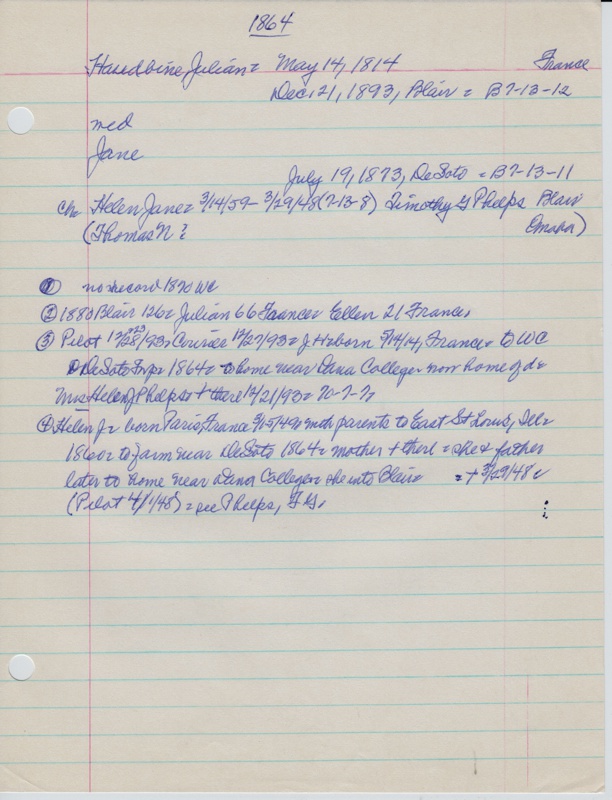 1864
Julian = May 14, 1814 France
Dec. 21, 1893, Blair = B7-13-12
med
Jane
July 19, 1873, DeSoto = B7-13-11
Ch= Helen Jane = 3/14/59 - 3/29/48 (7-13-8) Timothy G Phelps Blair
(Thomas N ? Omaha)
① no record 1870 WC
② 1880 Blair 126 = Julian 66 France = Ellen 21 France
③ Pilot 12/28/93 = Courier 12/27/93 = J. H born 5/14/14, France = to WC
DeSoto Twp = 1864 = to home near Dana College = now home of d =
Mrs Helen J Phelps = + there 12/21/93 = 70-7-7
④ Helen J = born Paris, France = with parents to East St Louis, Ill =
1860 = to farm near DeSoto 1864 = mother + there = she & father
later to home near Dana College = she into Blair = + 3/29/48
(Pilot 4/1/48) = see Phelps, T G.